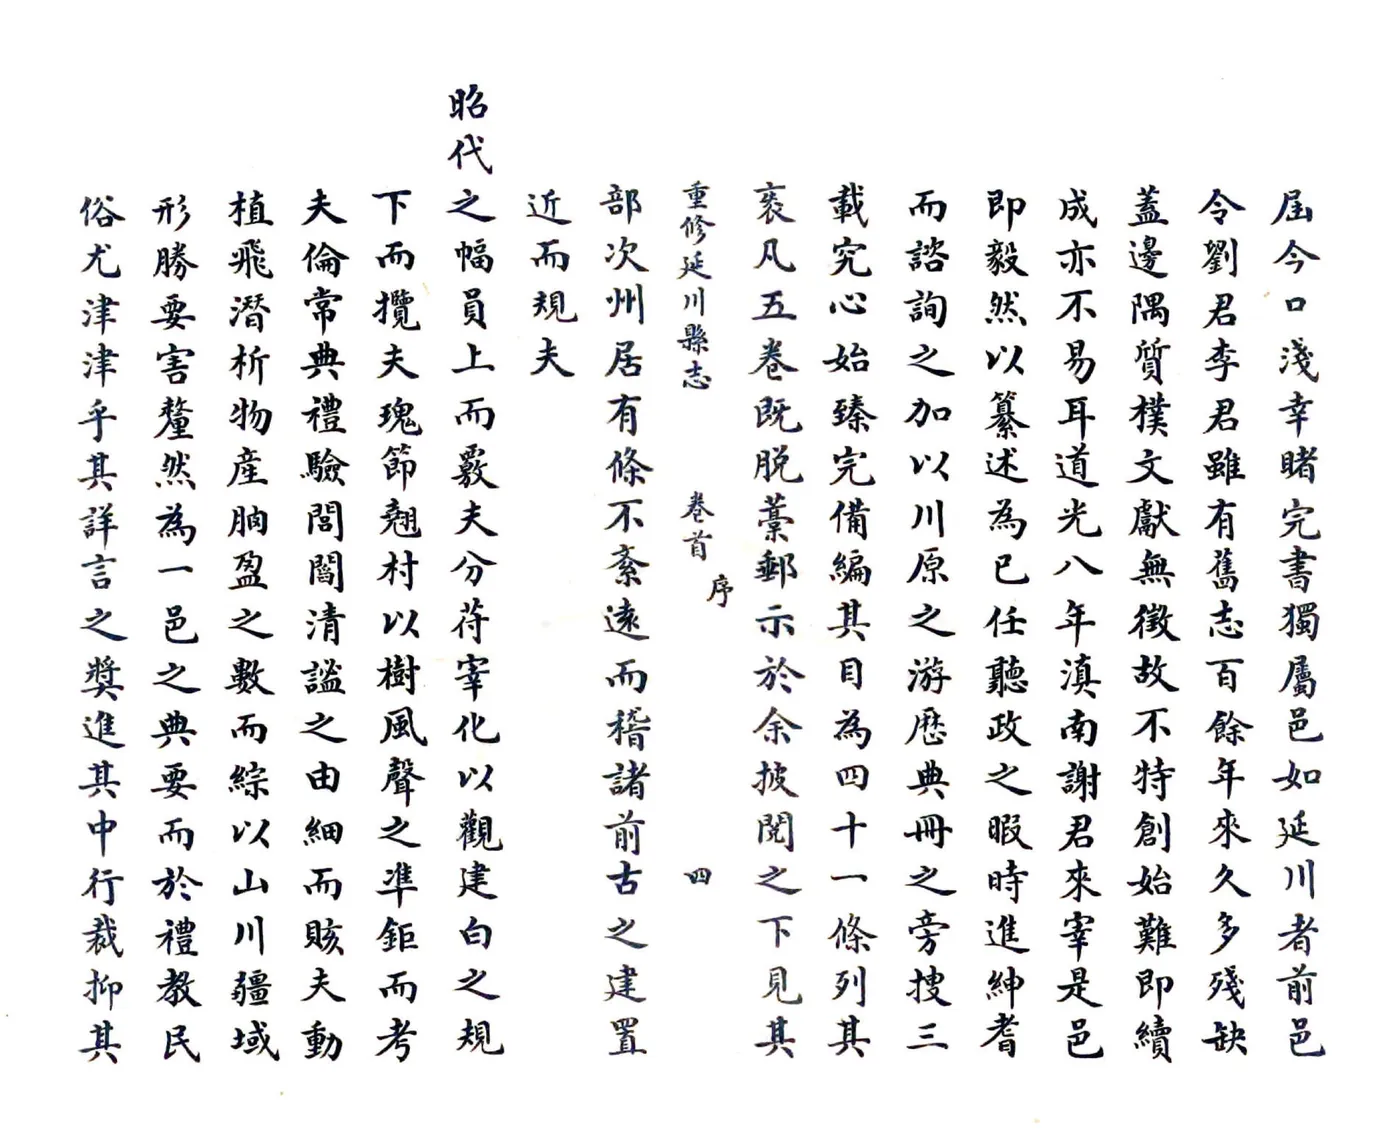 屆今口淺幸睹完書獨屬邑如延川者前邑
令劉君李君雖有舊志百餘年來久多殘缺
蓋邊隅質樸文獻無徵故不特創始難即續
成亦不易耳道光八年滇南謝君來宰是邑
即毅然以纂述為已任聽政之暇時進紳耆
而諮詢之加以川原之游歷典冊之旁搜三
載究心始臻完備編其目為四十一條列其
袠凡五卷既脫藁郵示於余披閱之下見其
重修延川縣志 卷首 序 四
部次州居有條不紊遠而稽諸前古之建置
近而規夫
昭代之幅員上而覈夫分苻宰化以觀建白之規
下而攬夫瑰節翹村以樹風聲之準鉅而考
夫倫常典禮驗閭閻清謐之由細而賅夫動
植飛潛析物產朒盈之數而綜以山川疆域
形勝要害釐然為一邑之典要而於禮教民
俗尤津津乎其詳言之獎進其中行裁抑其